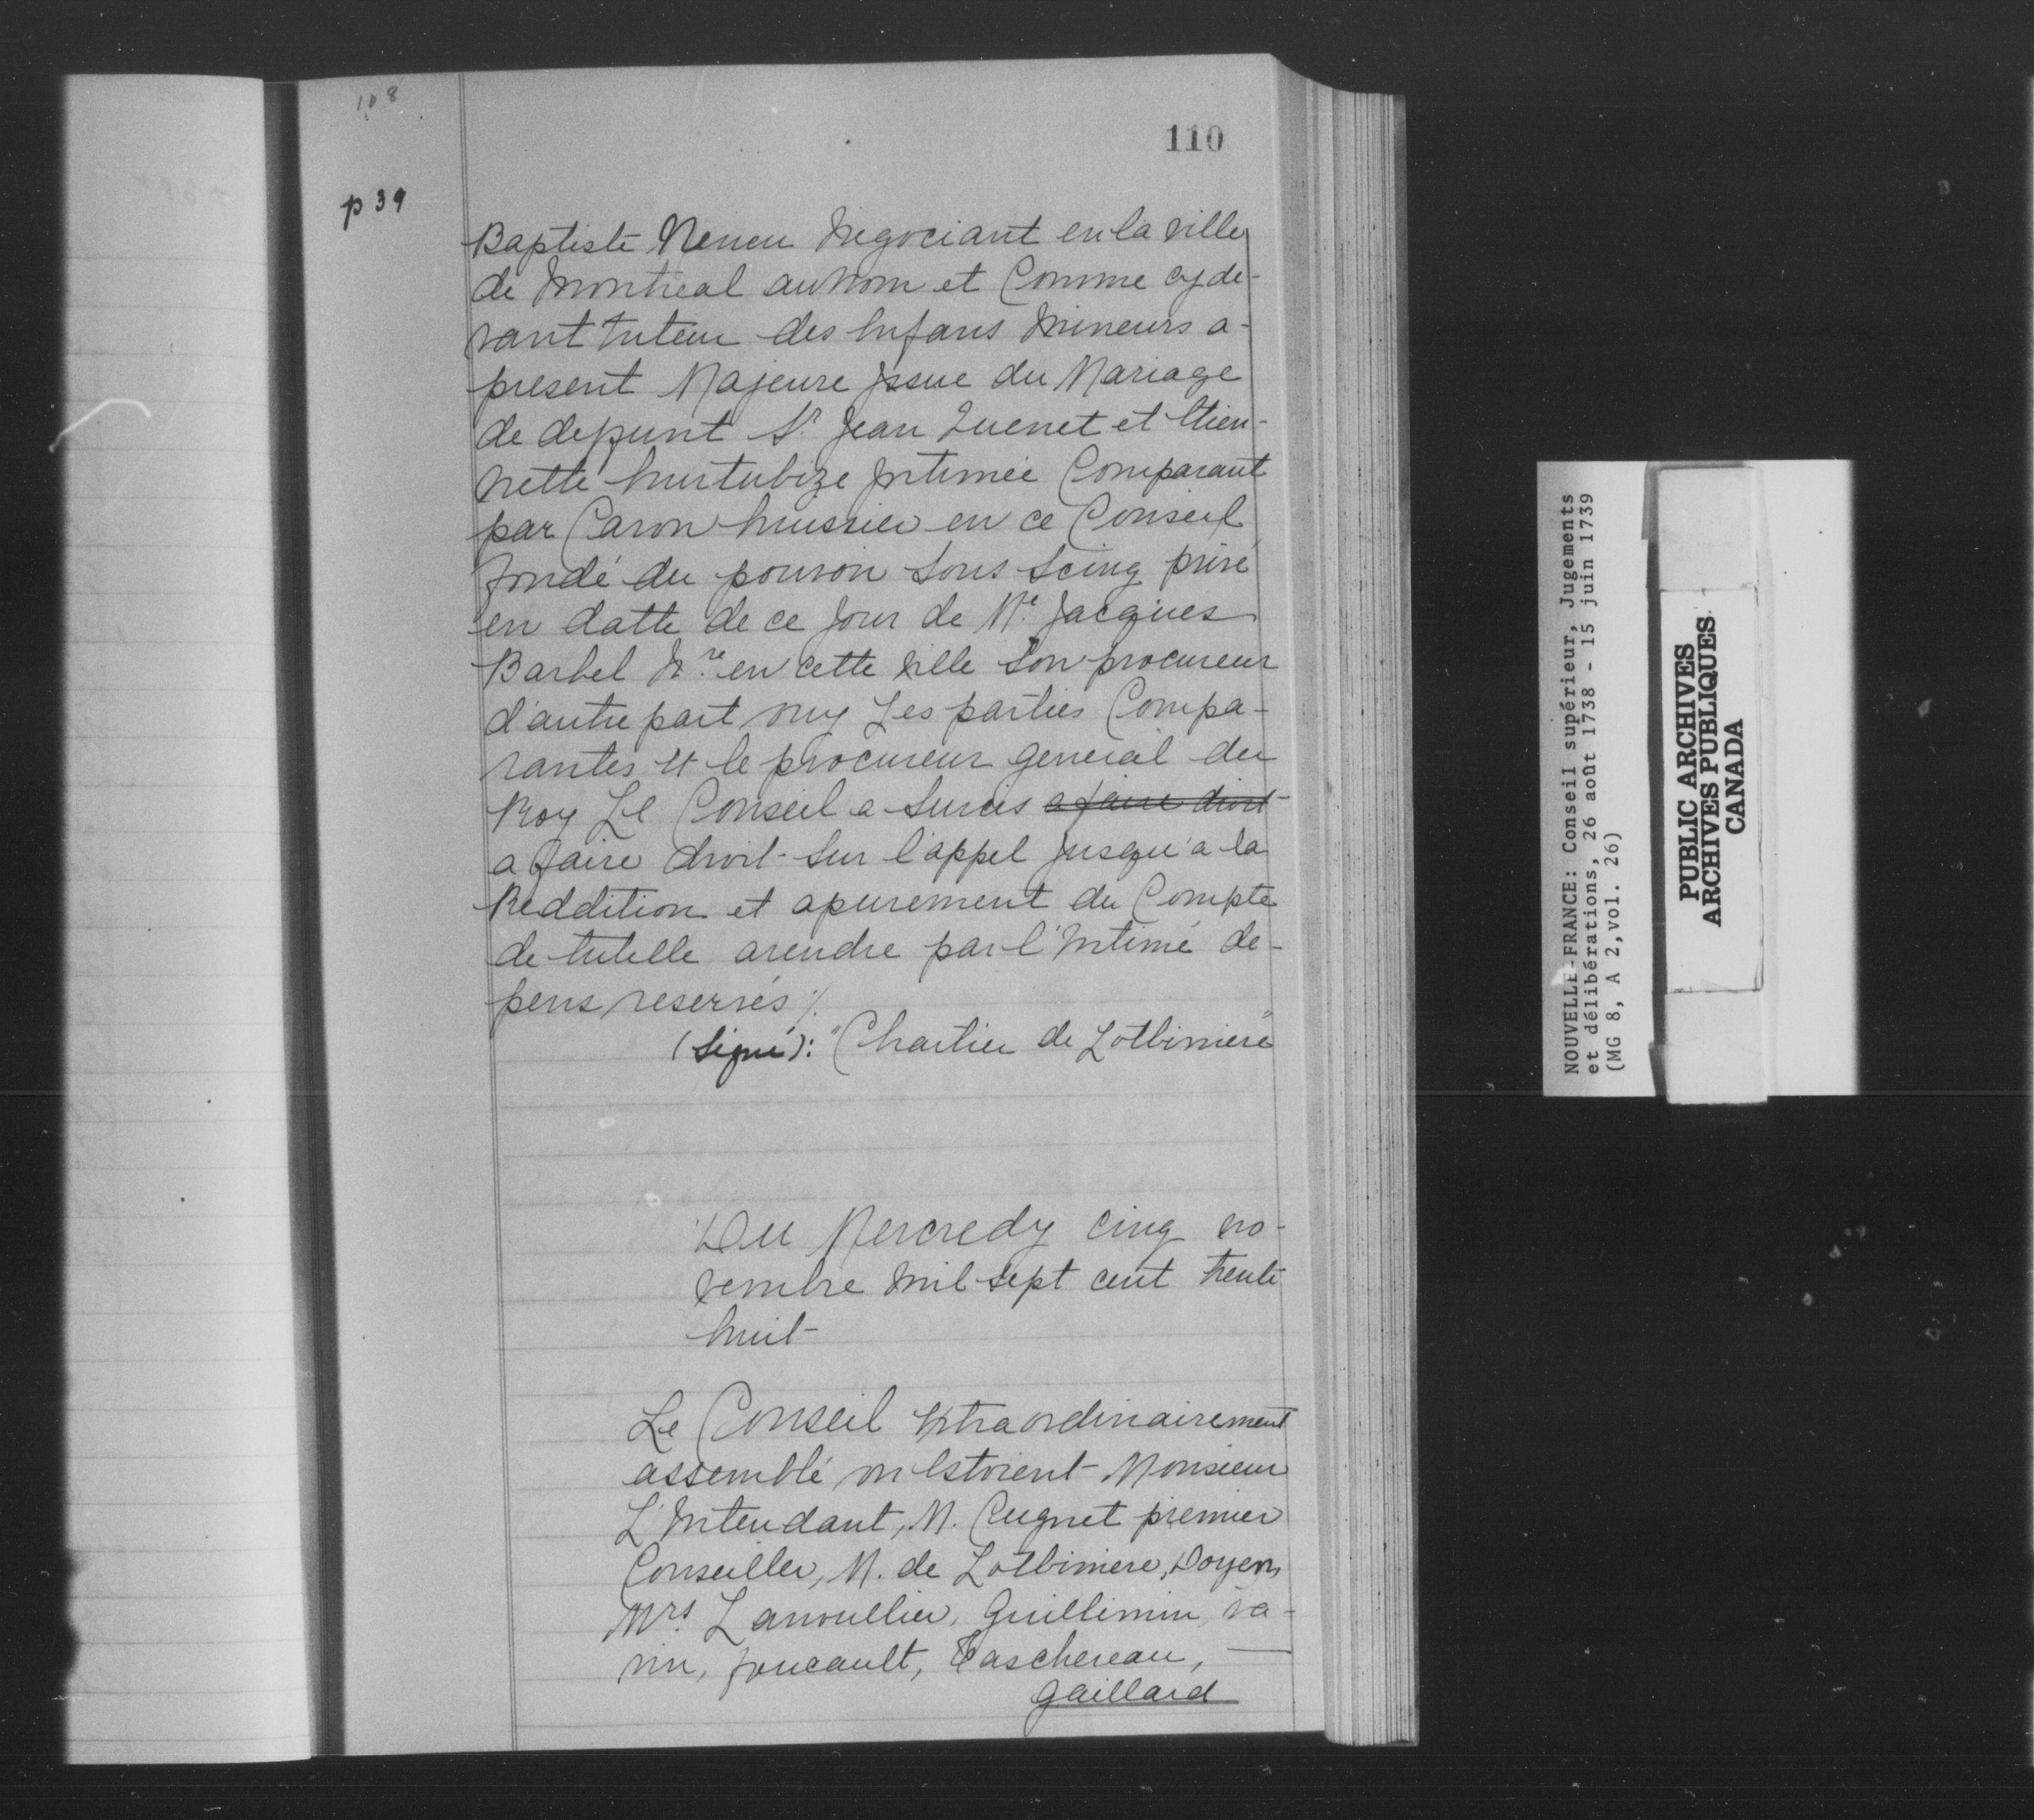 108
110
p 39
Baptiste Neveu Negociant en la ville
de Montreal au Nom et Comme cy de-
vant tuteur des Enfans Mineurs a-
present Majeure Jssue du Mariage
de deffunt Sr. Jean Quenet et Etien-
nette hurtubize Jntimée Comparant
par Caron huissier en ce Conseil
fondé du pouvoir Sous Seing privé
en datte de ce Jour de Me. Jacques
Barbel Nre. en cette ville Son procureur
d'autre part ouy Les parties Compa-
rantes et le procureur general du
Roy Le Conseil a Surcis a faire droit
a faire droit Sur l'appel Jusqu'a la
Reddition et apurement du Compte
de tutelle arendre par l'Intimé de-
pens reservés ./.
(Signé): "Chartier de Lotbiniere"
Du Mercredy cinq no-
vembre mil sept cent trente
huit
Le Conseil Extraordinairement
assemblé ou Estoient Monsieur
L'Intendant, M. Cugnet premier
Conseiller, M. de Lotbiniere, Doyen,
Mrs. Lanoullier, Guillimin, va-
rin, foucault, Taschereau,
Gaillard
NOUVELLE-FRANCE: Conseil supérieur, Jugements
et délibérations, 26 août 1738 - 15 juin 1739
(MG 8, A 2,vol. 26)
PUBLIC ARCHIVES
ARCHIVES PUBLIQUES
CANADA